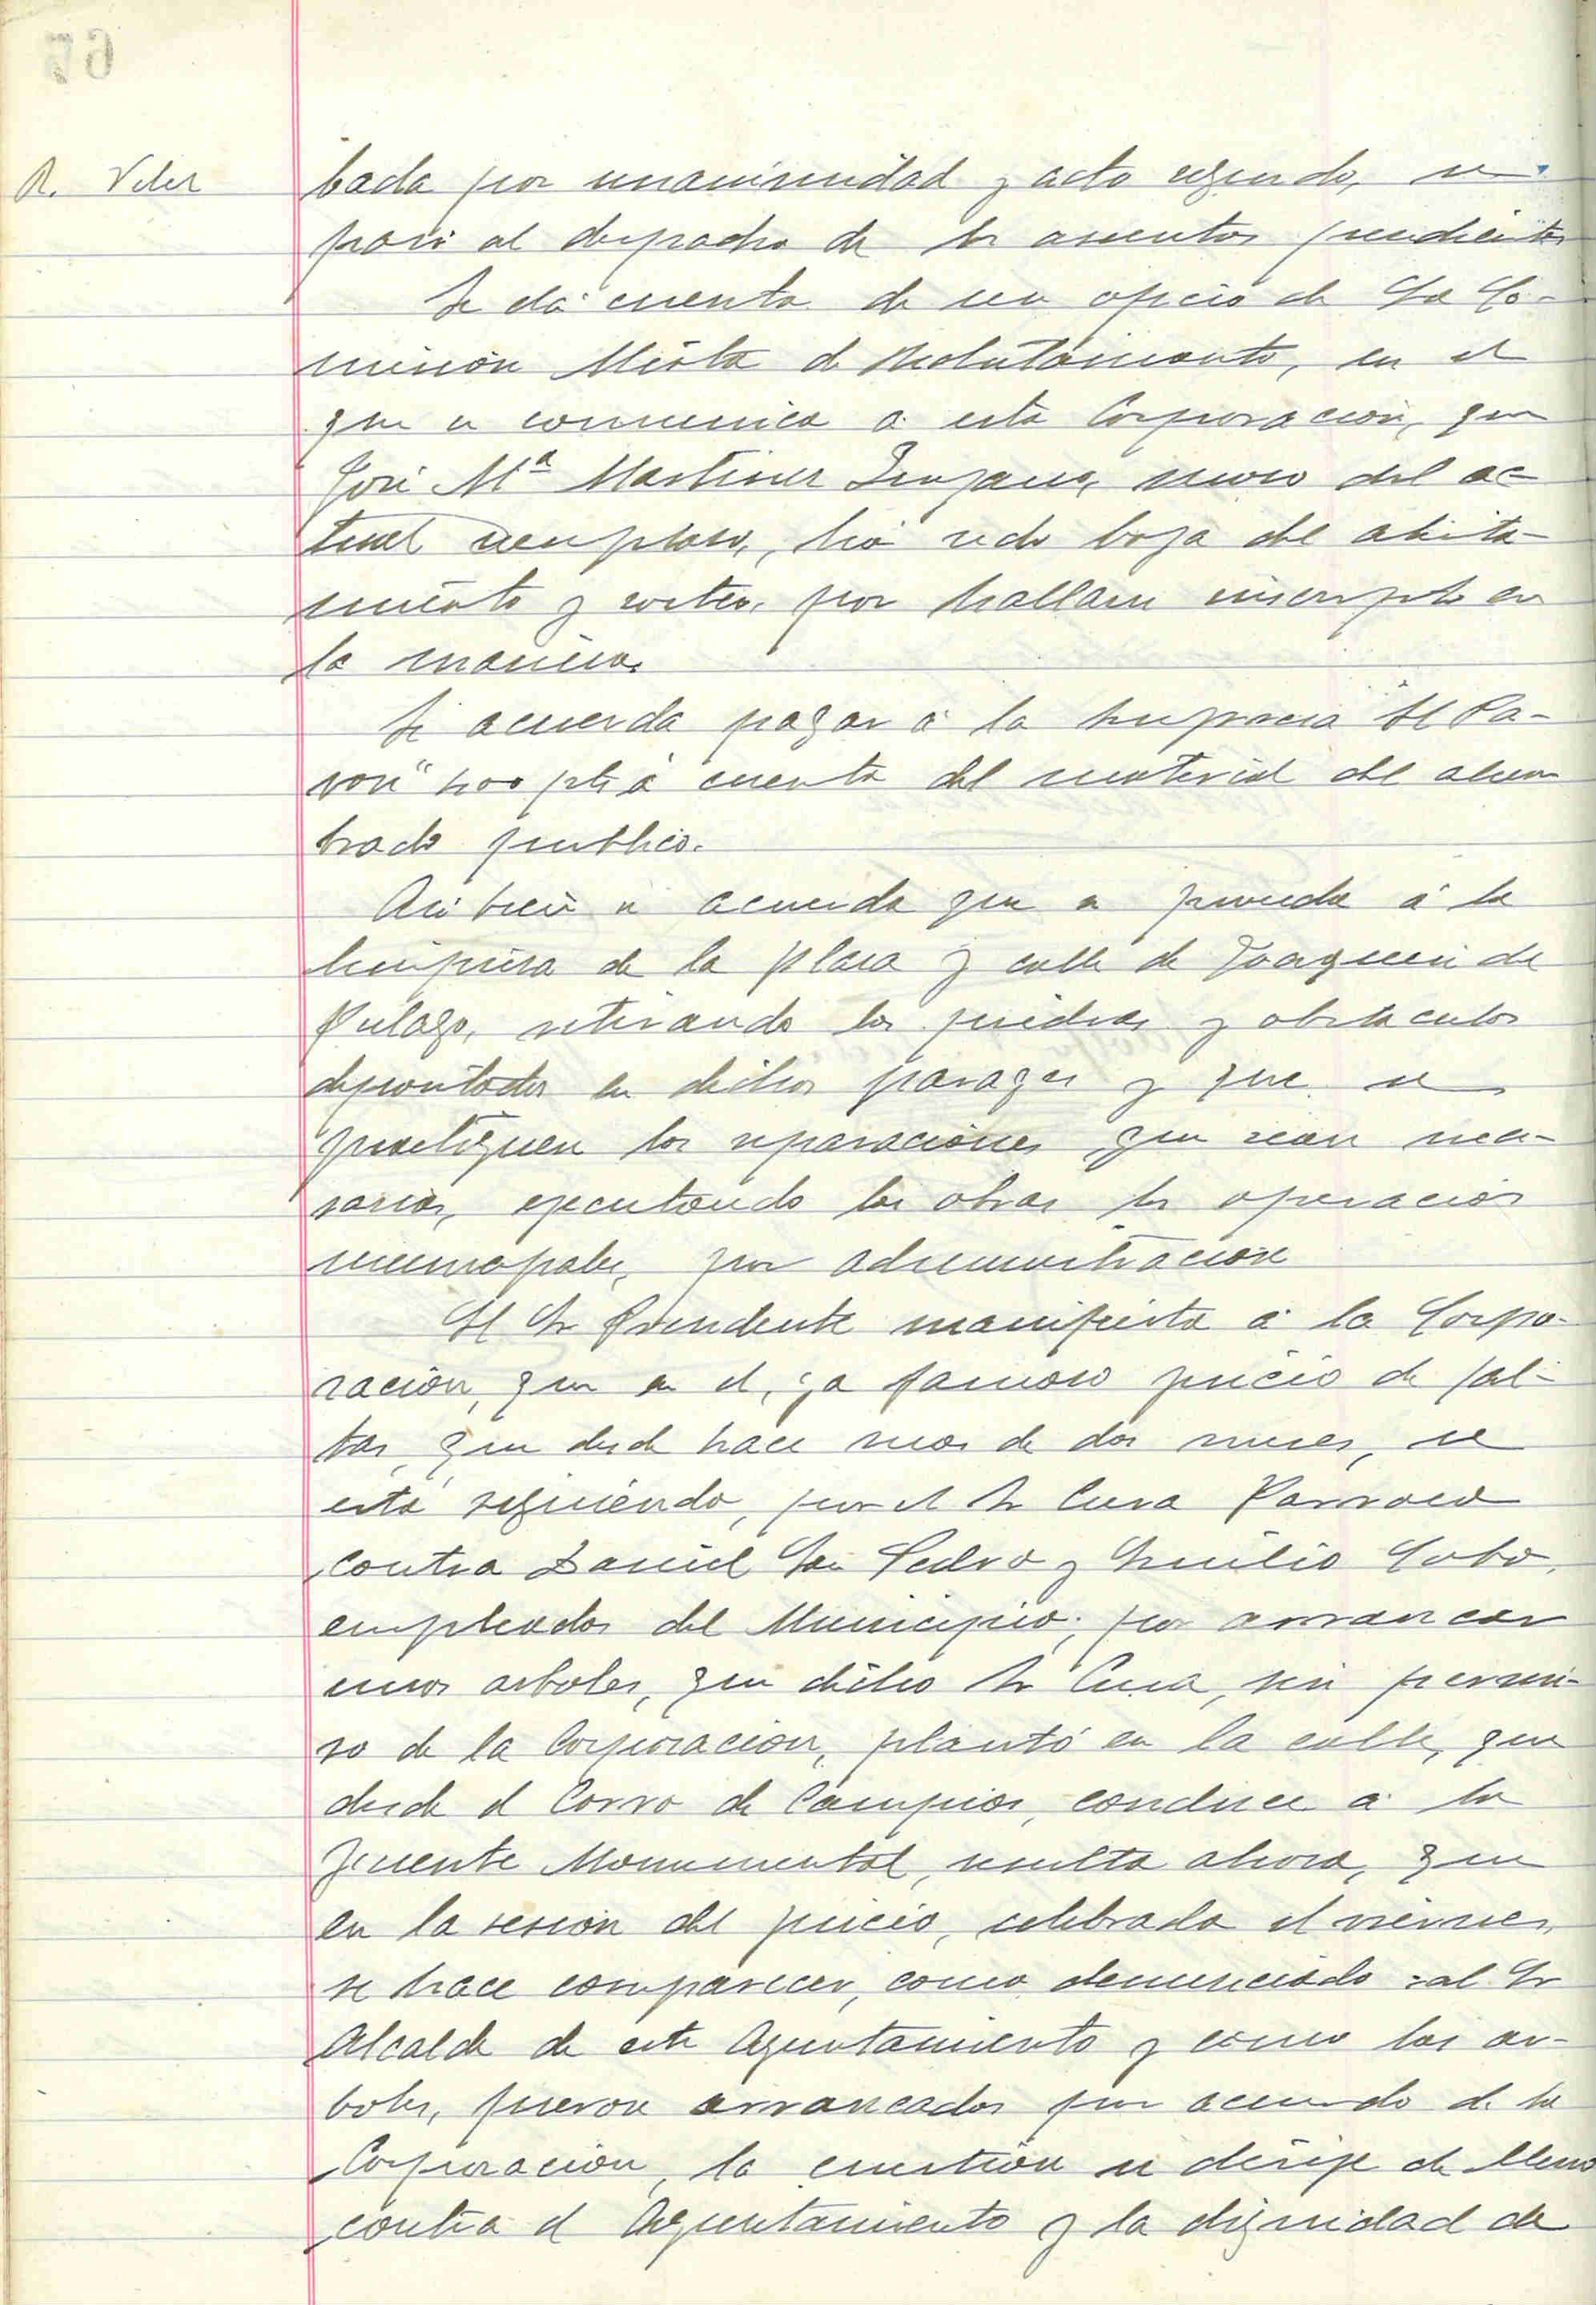 R. Velez
bada por unanimidad y acto seguido, se
pasó al despacho de los asuntos pendientes
Se dá cuenta de un oficio de la Co-
misión Mixta de Reclutamiento, en el
que se comunica á esta Corporación, que
José Mª Martinez mozo del ac-
tual reemplazo, há sido baja del alista-
miento y sorteo, por hallarse inscripto en
la marina.
Se acuerda pagar á la Empresa "El Pa-
sort" ptas á cuenta del material del alum
brado publico.
Asi bien se acuerda que se proceda á la
limpieza de la plaza y calle de Joaquin de
Piélago, retirando las piedras y obstaculos
depositados en dichos parages y que se
practiquen las reparaciones que sean nece-
sarias, ejecutando las obras los operarios
municipales, por administración
El Sr Presidente manifiesta á la Corpo-
ración, que en el, ya famoso juicio de fal-
tas, que desde hace mas de dos meses, se
está siguiendo, por el Sr Cura Parroco
contra Daniel San Pedro y Emilio Cobo,
empleados del Municipio, por arrancar
unos arboles, que dicho Sr Cura, sin permi-
so de la Corporación, plantó en la calle, que
desde el Corro de Campios, conduce á la
Fuente Monumental, resulta ahora, que
en la sesión del juicio, celebrada el viernes,
se hace comparecer, como denunciado al Sr
Alcalde de este Ayuntamiento y como los ar-
boles, fueron arrancados por acuerdo de la
Corporación, la cuestión se dirije de lleno
contra el Ayuntamiento y la dignidad de